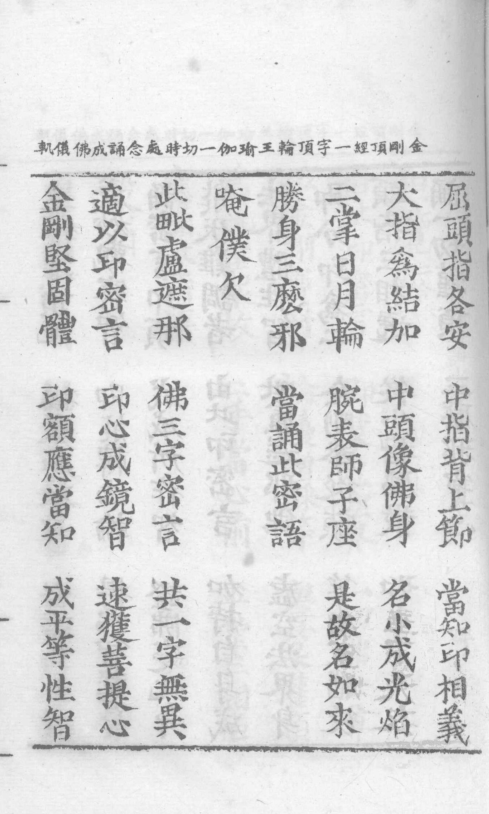 金剛頂經一字頂輪王瑜伽一切時處念誦成佛儀軌
屈頭指各安　中指背上節　當知印相義
大指為結加　中頭像佛身　名小成光焰
二掌日月輪　腕表師子座　是故名如來
勝身三麽邪　當誦此密語
唵僕欠
此毗盧遮那　佛三字密言　共一字無異
適以印密言　印心成鏡智　速獲菩提心
金剛堅固體　印額應當知　成平等性智